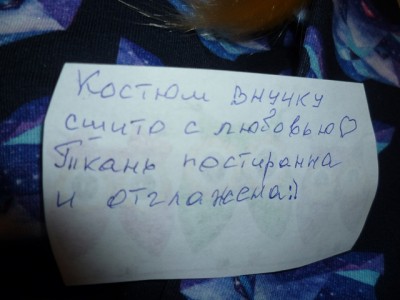 Костюм внучку
сшито с любовью♡
Ткань постиранна
и отглажена:)